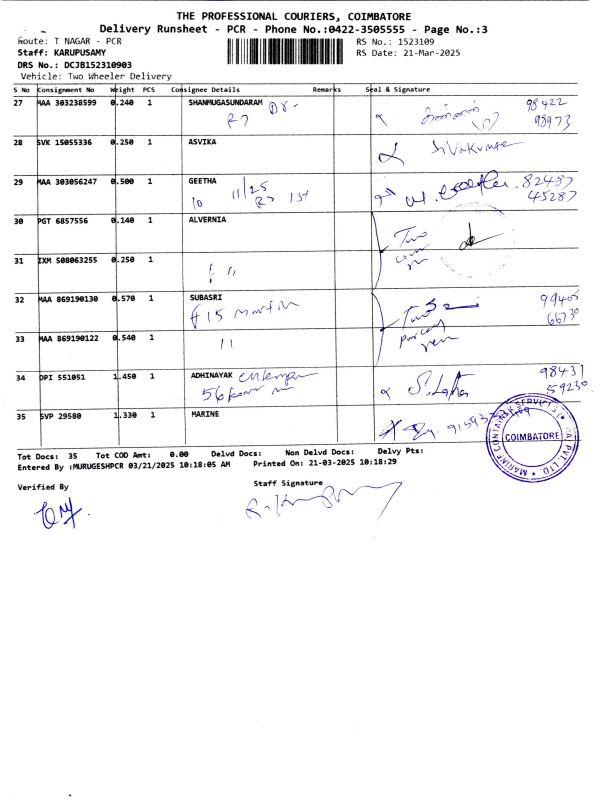 THE PROFESSIONAL COURIERS, COIMBATORE
Delivery Runsheet - PCR - Phone No.:0422-3505555 - Page No.:3
Route: T NAGAR - PCR RS No.: 1523109
Staff: KARUPUSAMY RS Date: 21-Mar-2025
DRS No.: DCJB152310903
Vehicle: Two Wheeler Delivery
S No Consignment No Weight PCS Consignee Details Remarks Seal & Signature
27 MAA 303238599 0.240 1 SHANMUGASUNDARAM Dr. 98422
98973
28 SVK 15055336 0.250 1 ASVIKA SIVAKUMAR
29 MAA 303056247 0.500 1 GEETHA 82487
10 11/25 1st 45287
30 PGT 6857556 0.140 1 ALVERNIA Two
31 IXM 508063255 0.250 1
11
32 MAA 869190130 0.570 1 SUBASRI
F15 Martin
33 MAA 869190122 0.540 1
11
34 DPI 551051 1.450 1 ADHINAYAK 98431
56 S. Latha 59230
35 SVP 29580 1.330 1 MARINE
MARINE CONTAINER SERVICES PVT. LTD.
COIMBATORE
Tot Docs: 35 Tot COD Amt: 0.00 Delvd Docs: Non Delvd Docs: Delvy Pts:
Entered By :MURUGESHPCR 03/21/2025 10:18:05 AM Printed On: 21-03-2025 10:18:29
Verified By Staff Signature